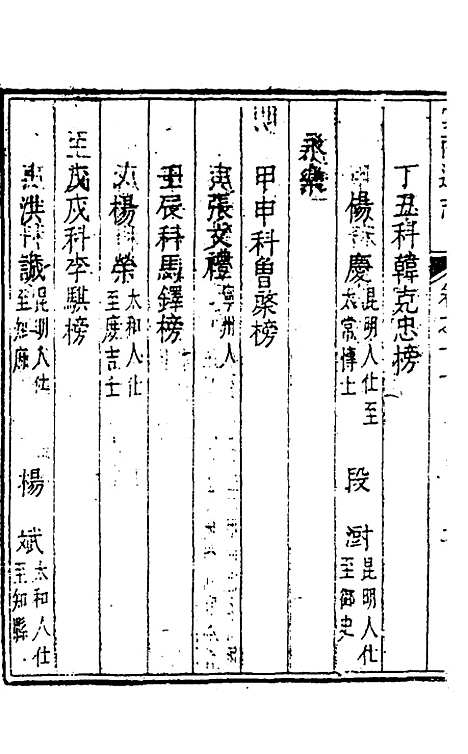 丁丑科韓克忠榜
楊 慶昆明人仕至太常博士 段 澍昆明人仕至御史
永樂
甲申科曾棨榜
張文禮寧州人
壬辰科馬鐸榜
楊 榮太和人仕至庶吉士
戊戌科李騏榜
洪 誠昆明人仕至知府 楊 斌太和人仕至知縣